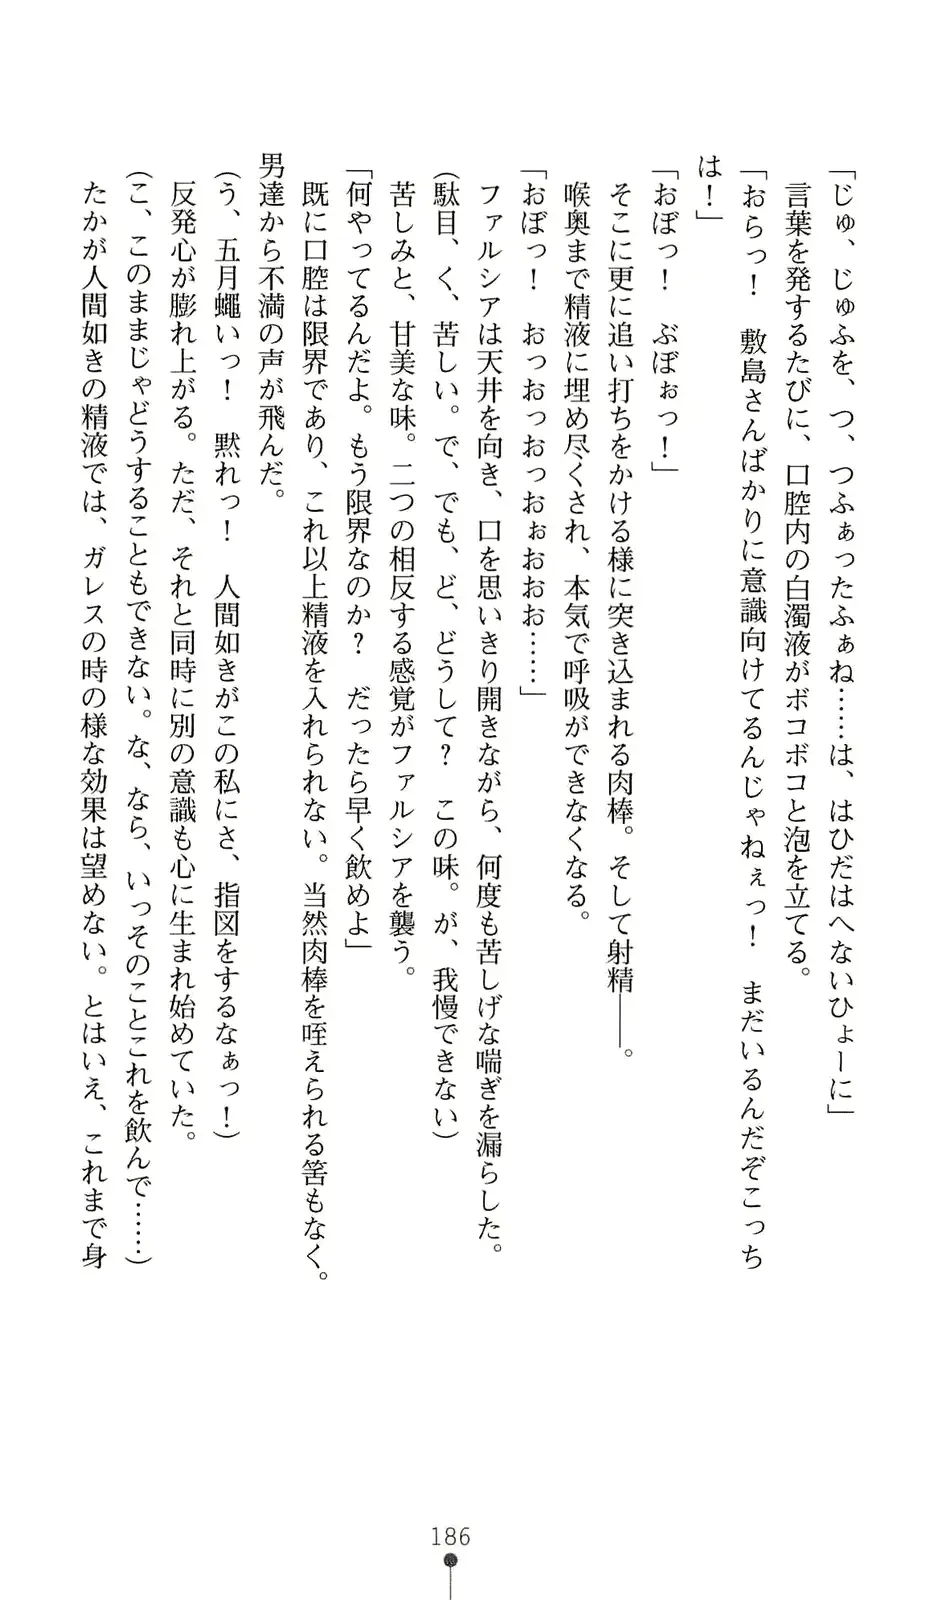 「じゅ、じゅふを、つ、つふぁったふぁね……は、はひだはへないひょーに」
言葉を発するたびに、口腔内の白濁液がボコボコと泡を立てる。
「おらっ！　敷島さんばかりに意識向けてるんじゃねぇっ！　まだいるんだぞこっち
は！」
「おぼっ！　ぶぼぉっ！」
そこに更に追い打ちをかける様に突き込まれる肉棒。そして射精――。
喉奥まで精液に埋め尽くされ、本気で呼吸ができなくなる。
「おぼっ！　おっおっおっおぉおおお……」
ファルシアは天井を向き、口を思いきり開きながら、何度も苦しげな喘ぎを漏らした。
（駄目、く、苦しい。で、でも、ど、どうして？　この味。が、我慢できない）
苦しみと、甘美な味。二つの相反する感覚がファルシアを襲う。
「何やってるんだよ。もう限界なのか？　だったら早く飲めよ」
既に口腔は限界であり、これ以上精液を入れられない。当然肉棒を咥えられる筈もなく。
男達から不満の声が飛んだ。
（う、五月蠅いっ！　黙れっ！　人間如きがこの私にさ、指図をするなぁっ！）
反発心が膨れ上がる。ただ、それと同時に別の意識も心に生まれ始めていた。
（こ、このままじゃどうすることもできない。な、なら、いっそのことこれを飲んで……）
たかが人間如きの精液では、ガレスの時の様な効果は望めない。とはいえ、これまで身
186